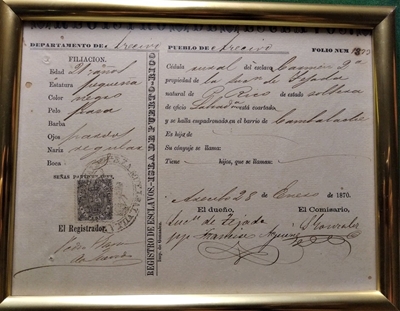 DEPARTAMENTO DE Arecivo PUEBLO DE Arecivo FOLIO NUM 1893
FILIACION.
Edad 21 años
Estatura pequeña
Color negro
Pelo Pasa
Barba
Ojos pardos
Nariz regular
Boca
SEÑAS PARTICULARES
El Registrador.
REGISTRO DE ESCLAVOS-ISLA DE PUERTO-RICO
Imp. de Gonzalez.
Cédula rural del esclavo Carmen 2ª
propiedad de la Suon de Tejada
natural de P. Rico de estado soltera
de oficio Labradora está coartado,
y se halla empadronado en el barrio de Cambalache
Es hijo de
Su cónyuge se llama:
Tiene hijos, que se llaman:
Arecibo 28 de Enero de 1870.
El dueño, El Comisario,
Suc. de Tejada
Gonzalez